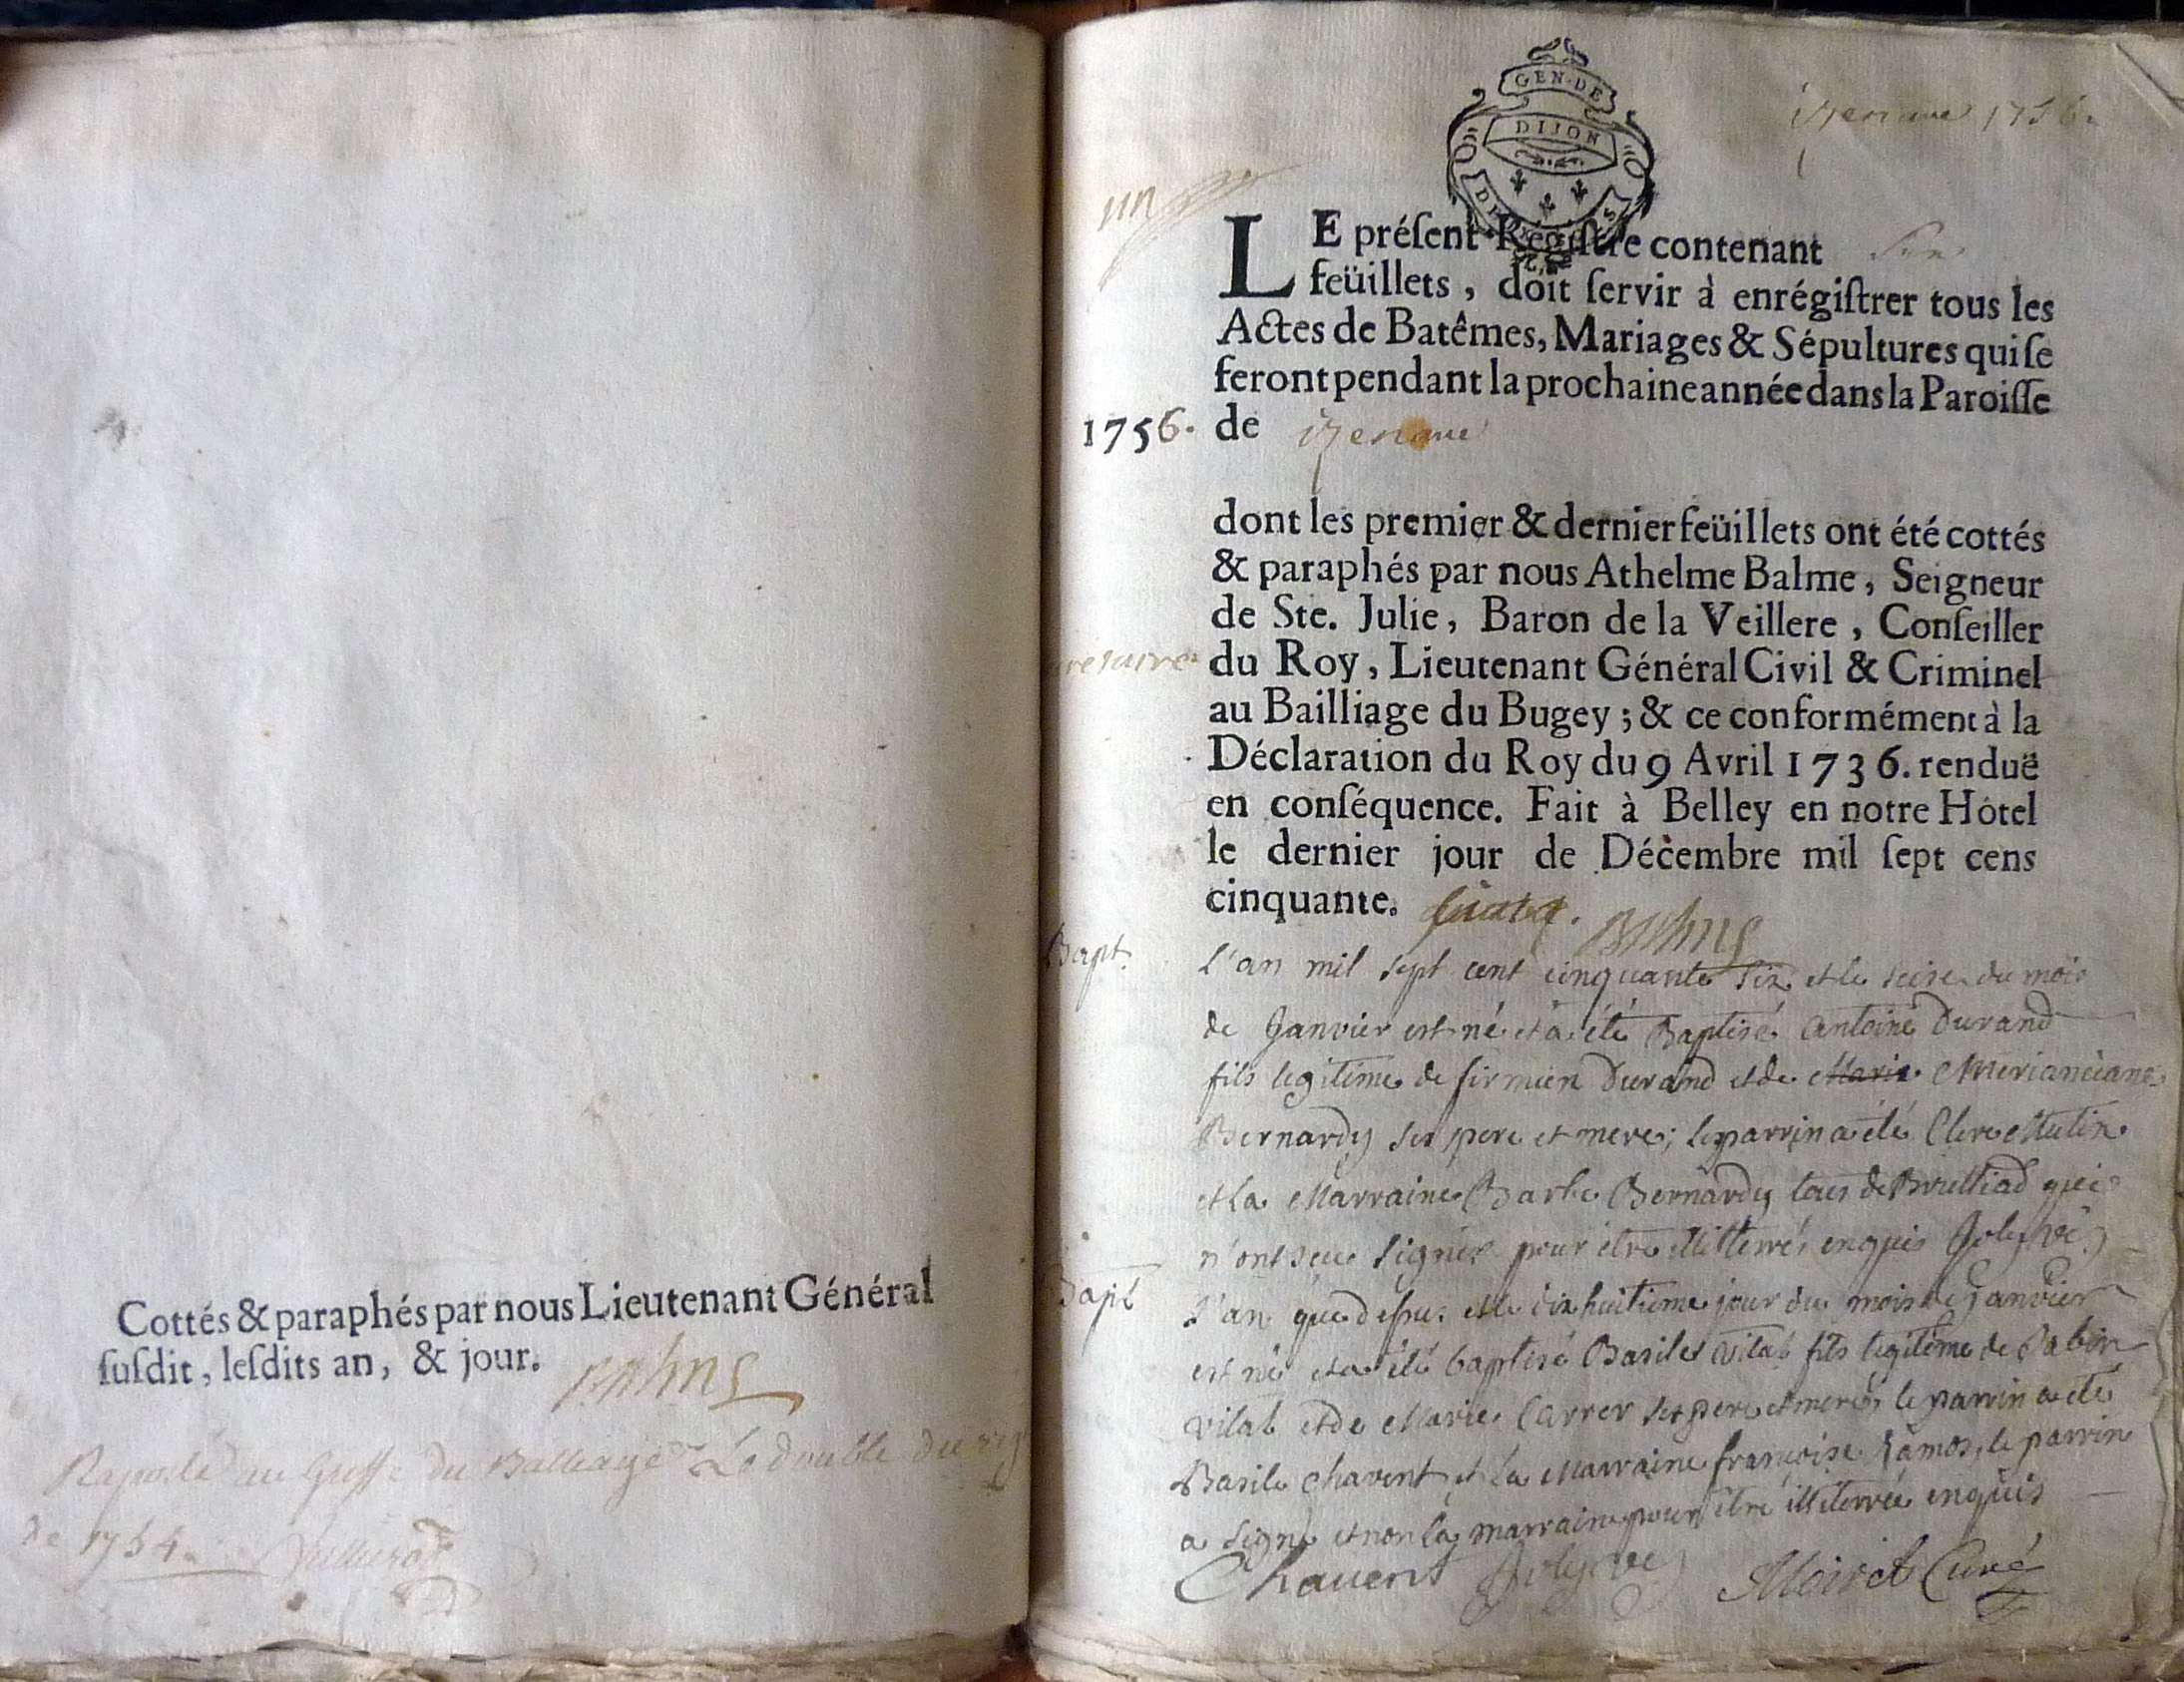 Cottés & paraphés par nous Lieutenant Général
ſuſdit, leſdits an, & jour.
du Le double du
de 1754
GEN·DE
DIJON
izenave 1756.
un
LE préſent Régiſtre contenant
feüillets, doit ſervir à enrégiſtrer tous les
Actes de Batêmes, Mariages & Sépultures qui ſe
feront pendant la prochaine année dans la Paroiſſe
1756. de izenave
dont les premier & dernier feüillets ont été cottés
& paraphés par nous Athelme Balme, Seigneur
de Ste. Julie, Baron de la Veillere, Conſeiller
du Roy, Lieutenant Général Civil & Criminel
au Bailliage du Bugey; & ce conformément à la
Déclaration du Roy du 9 Avril 1736. renduë
en conſéquence. Fait à Belley en notre Hôtel
le dernier jour de Décembre mil ſept cens
cinquante.
Bapt. L'an mil sept cent cinquante six et le seise du mois
de Janvier est né et a été Baptisé antoine Durand
fils legitime de firmien Durand et de Marie
Bernardy ses pere et mere; le parrin a été Clere
et la Marraine Barbe Bernardy tous de qui
n'ont sçeu signer pour être illiterrés enquis
Bapt L'an que dessus et le dix huitieme jour du mois de Janvier
est né et a été baptisé Basile vital fils legitime de Sabin
vital et de Marie Carrer ses pere et mere, le parrin a été
Basile Chavent et la Marraine françoise Ramos, le parrin
a signé et non la marraine pour être illiterrée enquis
Chavent Curé